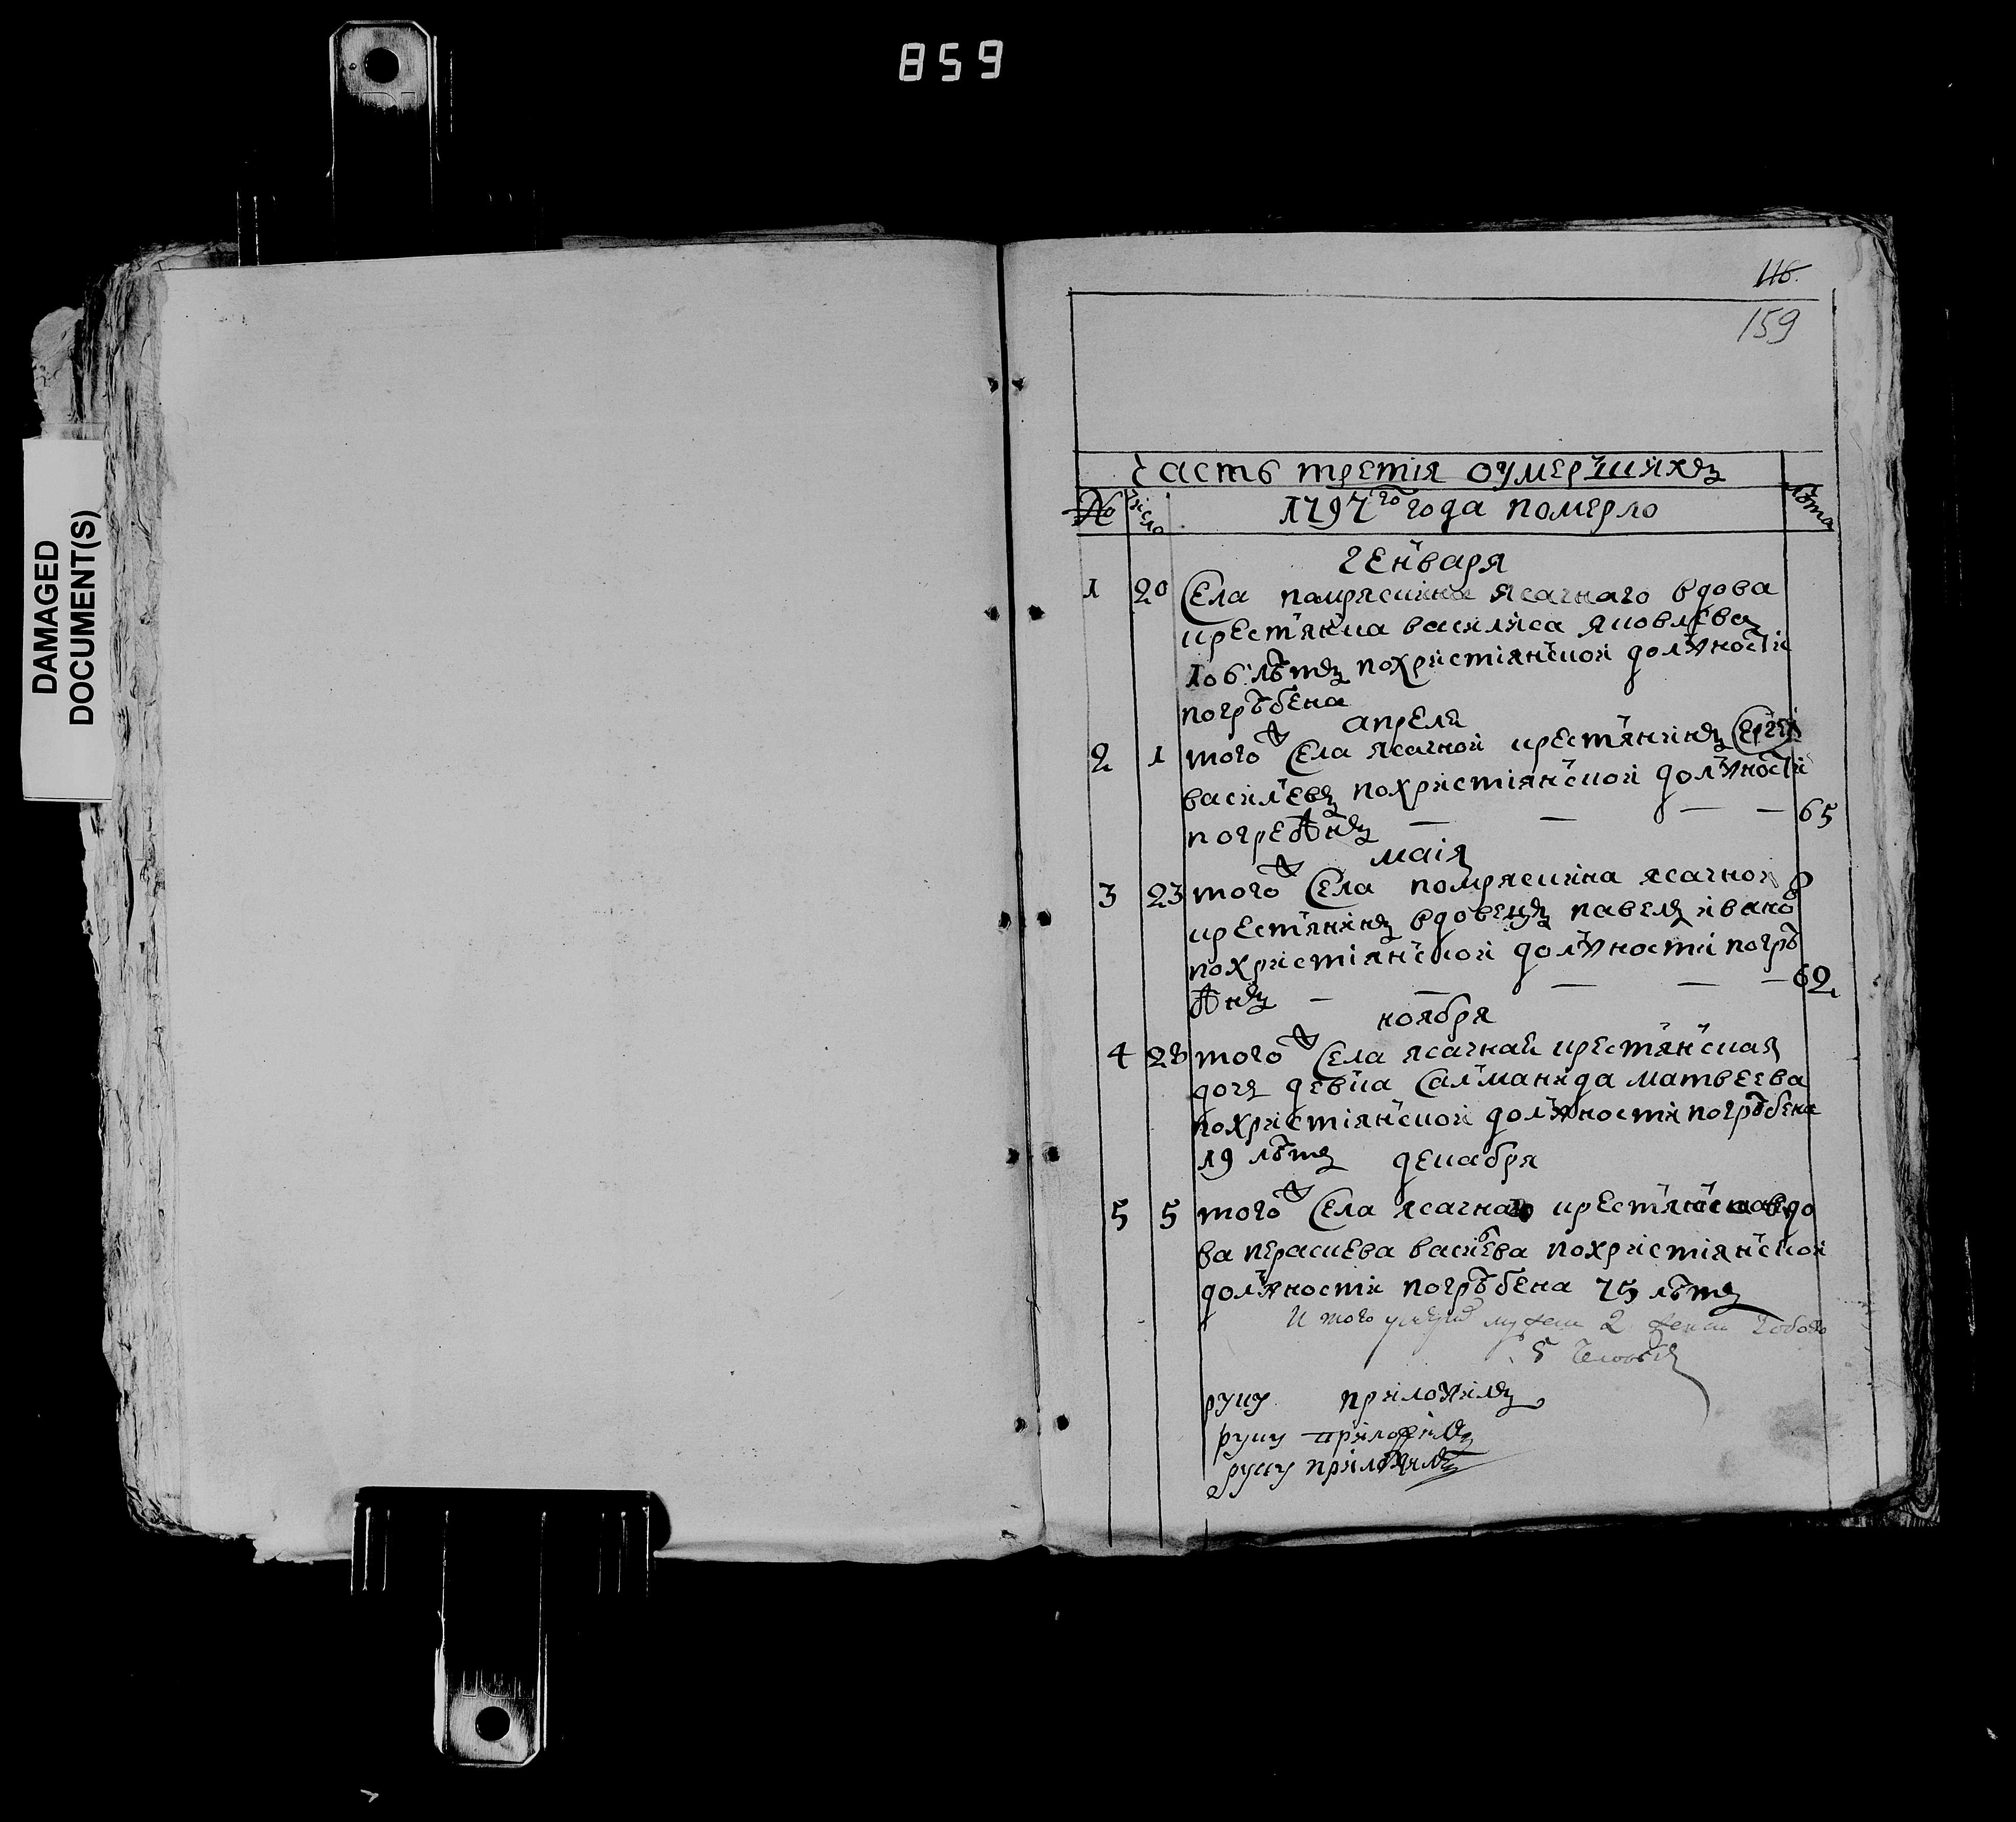 859
DAMAGED
DOCUMENT(S)
116.
159
часть третия оумерших
№ число 1797го года померло лѣта
генваря
1 20 Села помряскина ясачнаго вдова
крестьянка василиса яковлева
106 лѣтъ похристиянской должности
погрѣбена
апреля
2 1 того ж Села ясачной крестьянинъ Сергей
василʼевъ похристиянской должности
погребенъ — — — — 65
маия
3 23 того ж Села помряскина ясачной
крестьянинъ вдовецъ павелъ ивановъ
похристиянской должности погрѣ
бенъ — — — — — 62
ноября
4 28 того ж Села ясачнай крестьянская
дочь девка Салманида матвеева
похристиянской должности погрѣбена
19 лѣтъ декабря
5 5 того ж Села ясачнаго крестьянская вдо
ва параскева васильева похристиянской
должности погрѣбена 75 лѣтъ
И того муж 2 женск обоего
5 человекъ
руку приложилъ
руку приложилъ
руку приложилъ